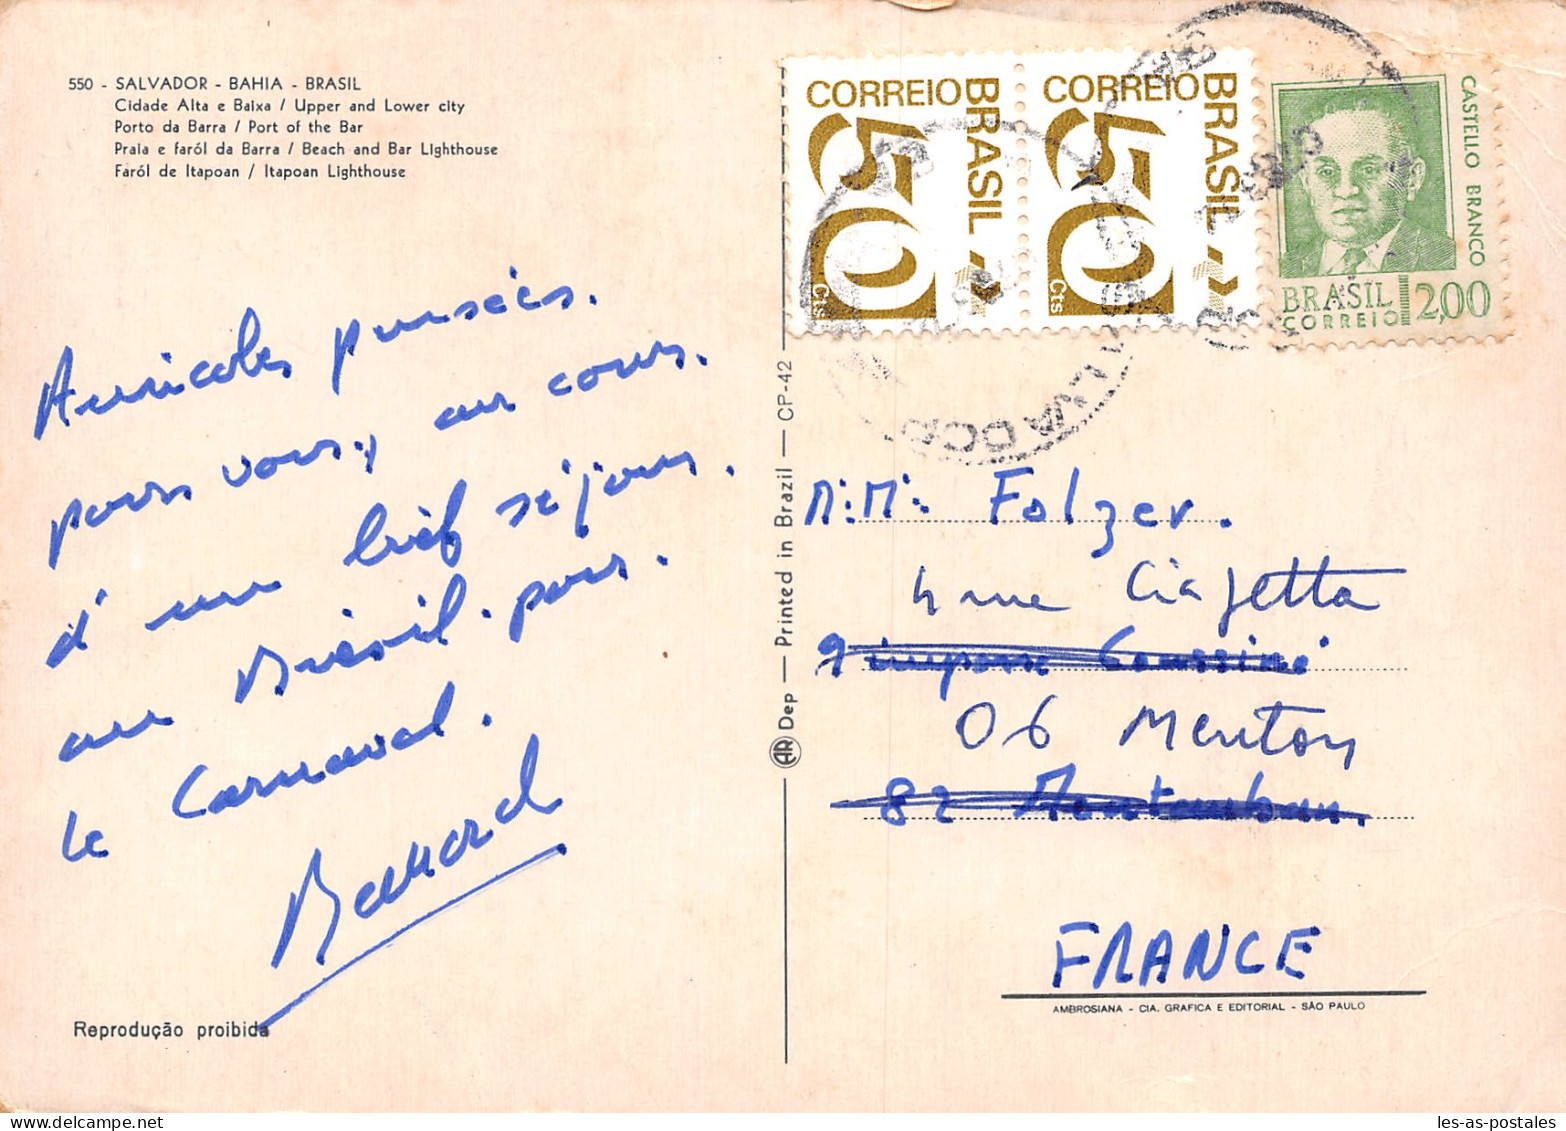 550 - SALVADOR - BAHIA - BRASIL
Cidade Alta e Baixa / Upper and Lower city
Porto da Barra / Port of the Bar
Praia e faról da Barra / Beach and Bar Lighthouse
Faról de Itapoan / Itapoan Lighthouse
CORREIO
BRASIL
50
Cts
CORREIO
BRASIL
50
Cts
CASTELLO BRANCO
BRASIL 2,00
CORREIO
SALVADOR
Amicales pensées.
pour vous, au cours
d'un bref séjour.
au Brésil. pour.
le Carnaval.
Bernard
Reprodução proibida
AR Dep — Printed in Brazil — CP-42
M. Me. Folzer.
4 rue Ciapetta
9 impasse
06 Menton
82 Montauban.
FRANCE
AMBROSIANA - CIA. GRAFICA E EDITORIAL - SÃO PAULO
les-as-postales